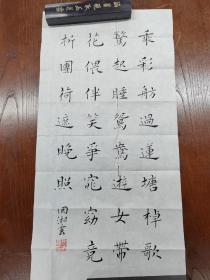 乘彩舫過蓮塘棹歌
驚起睡鴛鴦遊女帶
花偎伴笑爭窕窈竟
折團荷遮晚照